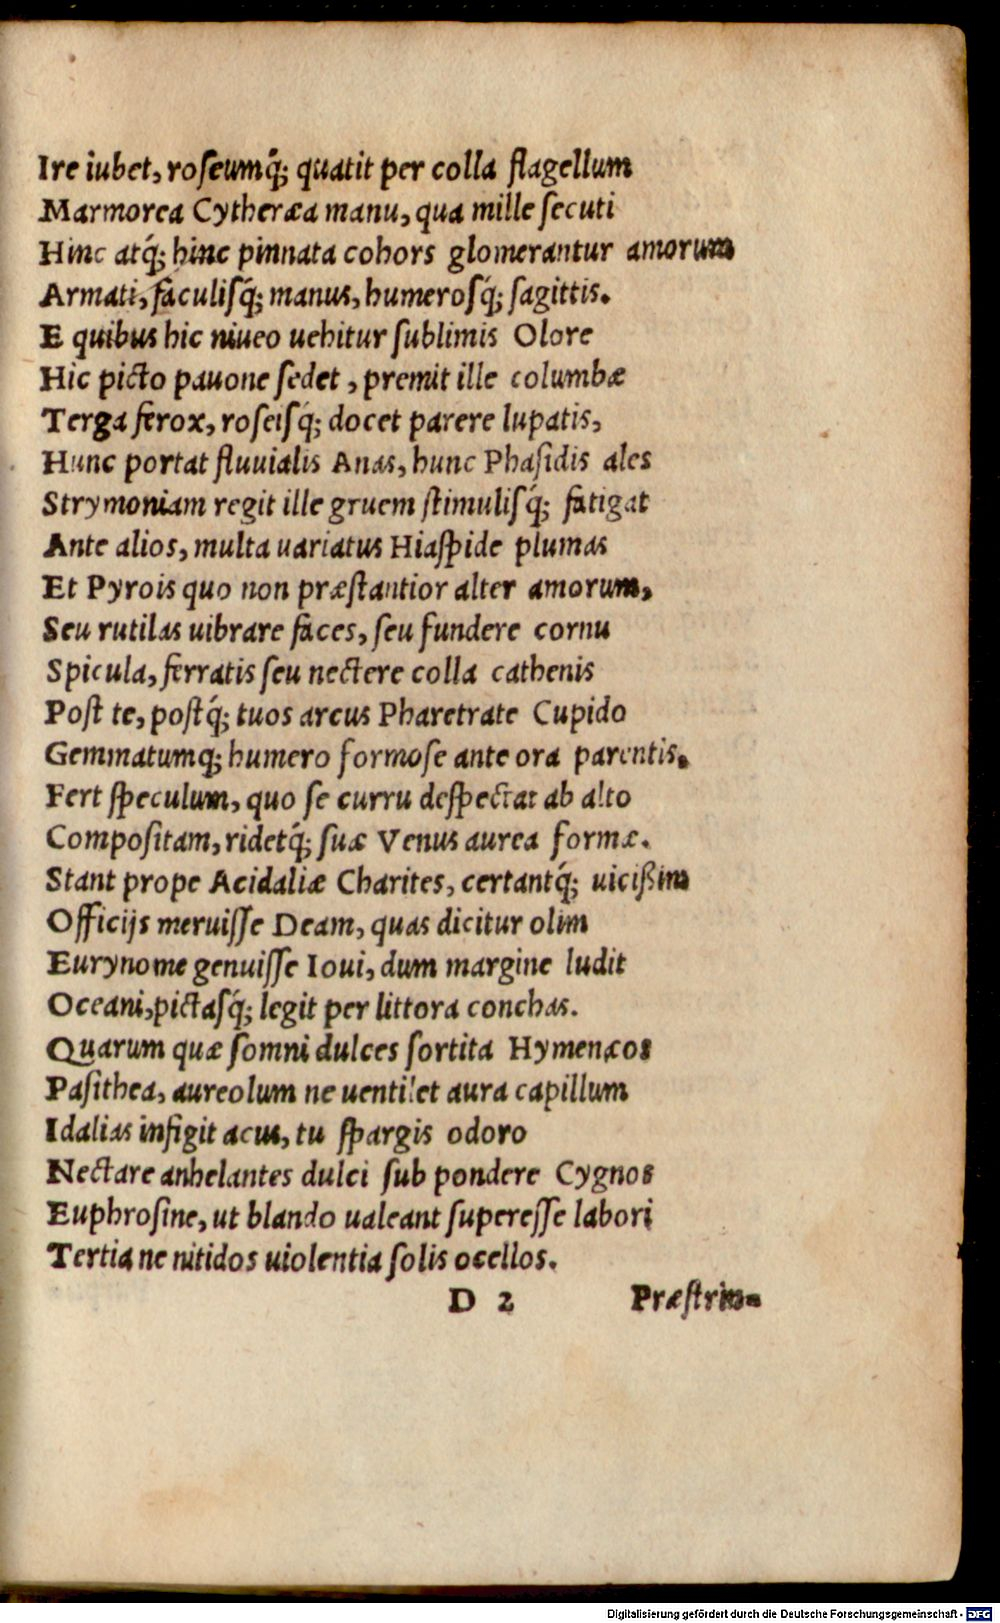 Ire iubet, roſeumq́; quatit per colla flagellum
Marmorea Cytheræa manu, qua mille ſecuti
Hinc atq́; hinc pinnata cohors glomerantur amorum
Armati, faculiſq́; manus, humeroſq́; ſagittis.
E quibus hic niueo uehitur ſublimis Olore
Hic picto pauone ſedet, premit ille columbæ
Terga ferox, roſeiſq́; docet parere lupatis,
Hunc portat fluuialis Anas, hunc Phaſidis ales
Strymoniam regit ille gruem ſtimuliſq́; fatigat
Ante alios, multa uariatus Hiaſpide plumas
Et Pyrois quo non præſtantior alter amorum,
Seu rutilas uibrare faces, ſeu fundere cornu
Spicula, ferratis ſeu nectere colla cathenis
Poſt te, poſtq́; tuos arcus Pharetrate Cupido
Gemmatumq; humero formoſe ante ora parentis.
Fert ſpeculum, quo ſe curru deſpectat ab alto
Compoſitam, ridetq́; ſuæ Venus aurea formæ.
Stant prope Acidaliæ Charites, certantq́; uicißim
Officijs meruiſſe Deam, quas dicitur olim
Eurynome genuiſſe Ioui, dum margine ludit
Oceani, pictaſq́; legit per littora conchas.
Quarum quæ ſomni dulces ſortita Hymenæos
Paſithea, aureolum ne uentilet aura capillum
Idalias infigit acus, tu ſpargis odoro
Nectare anhelantes dulci ſub pondere Cygnos
Euphroſine, ut blando ualeant ſupereſſe labori
Tertia ne nitidos uiolentia ſolis ocellos.
D 2 Præſtrin-
Digitalisierung gefördert durch die Deutsche Forschungsgemeinschaft - DFG